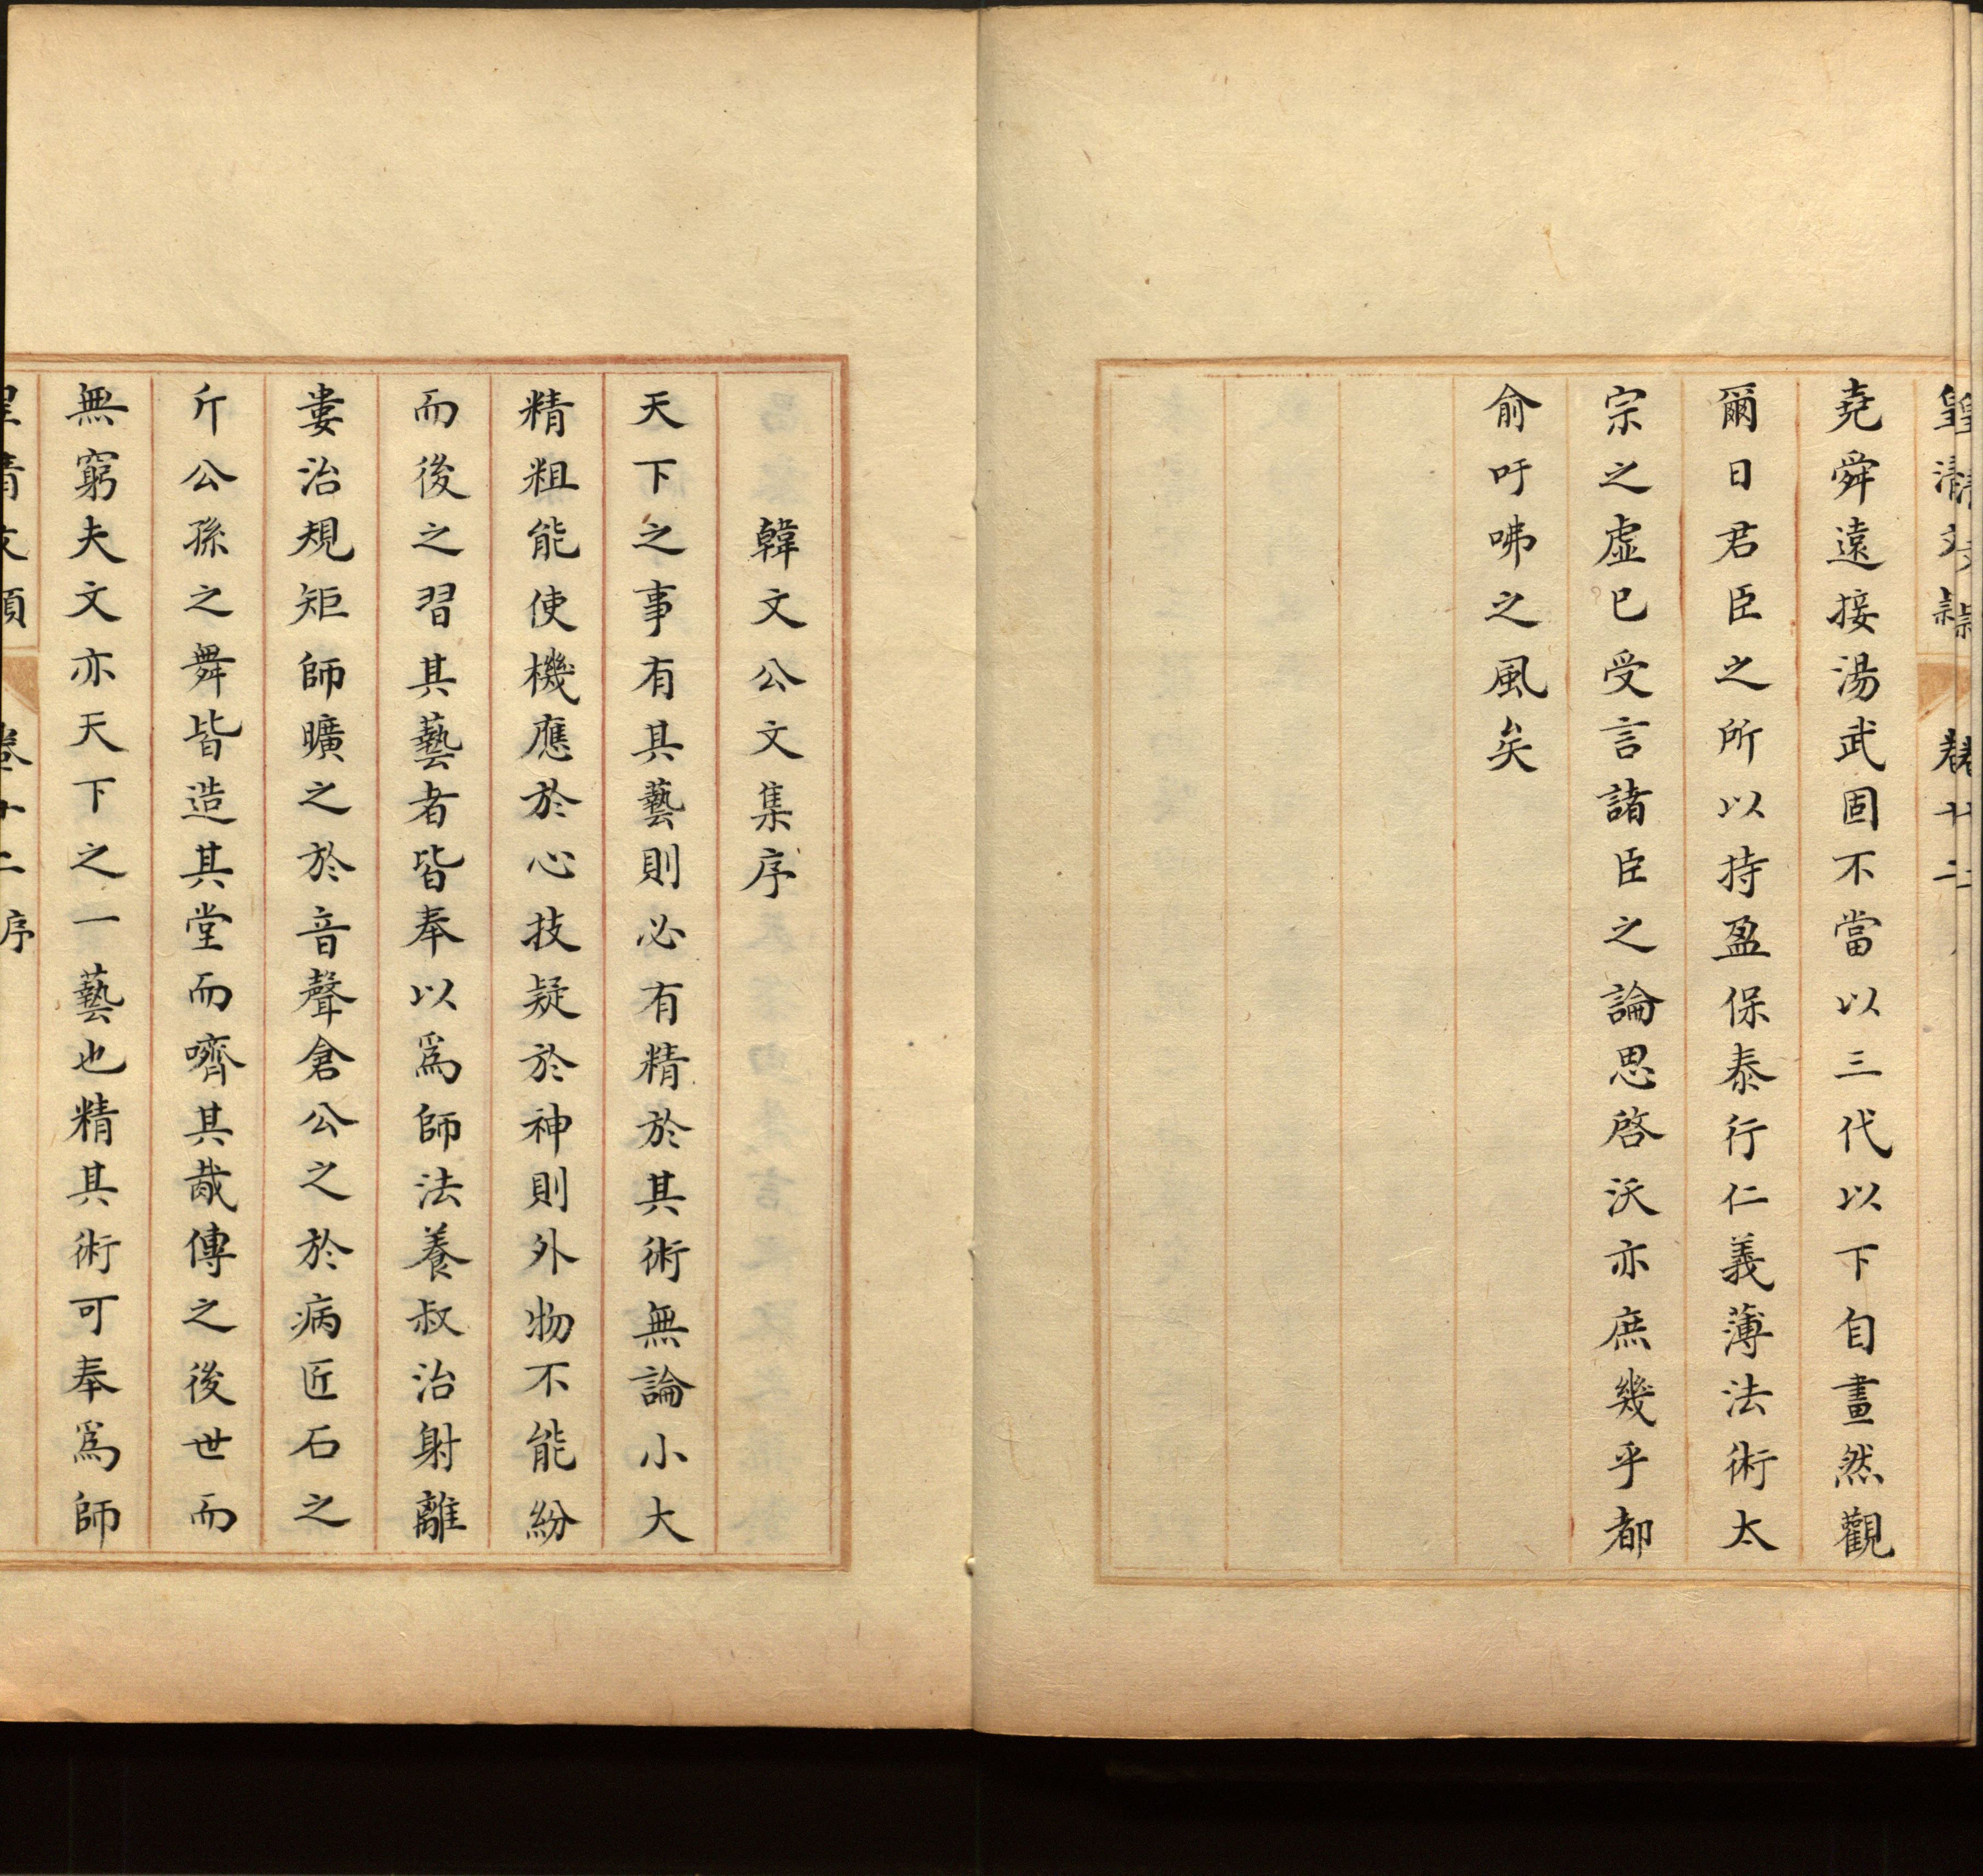 皇清文穎 卷十二
堯舜遠接湯武固不當以三代以下自畫然觀
爾日君臣之所以持盈保泰行仁義薄法術太
宗之虛已受言諸臣之論思啓沃亦庶幾乎都
俞吁咈之風矣
韓文公文集序
天下之事有其藝則必有精於其術無論小大
精粗能使機應於心技疑於神則外物不能紛
而後之習其藝者皆奉以爲師法養叔治射離
婁治規矩師曠之於音聲倉公之於病匠石之
斤公孫之舞皆造其堂而嚌其胾傳之後世而
無窮夫文亦天下之一藝也精其術可奉爲師
皇清文穎 卷十二 序